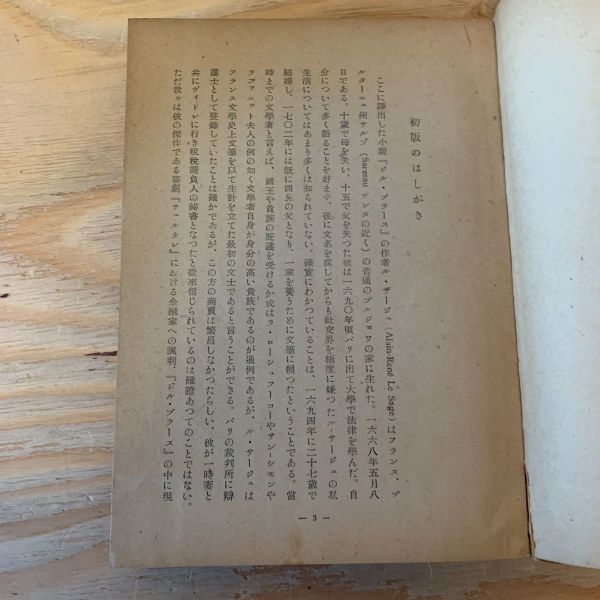 初版のはしがき
ここに譯出した小説『ジル・ブラース』の作者ル・サージュ(Alain-René Le Sage)はフランス、ブ
ルターニュ州サルゾ(Sarzeau ヴンヌの近く)の普通のブルジョワの家に生れた。一六六八年五月八
日である。十歳で母を失い、十五で父を失つた彼は一六九〇年頃パリに出て大學で法律を學んだ。自
分について多く語ることを好まず、後に文名を成してからも社交界を極度に嫌つたル・サージュの私
生活についてはあまり多くは知られていない。確實にわかつていることは、一六九四年に二十七歳で
結婚し、一七〇二年には既に四兒の父となり、一家を養うために文筆に頼つたということである。當
時までの文學者と言えば、國王や貴族の庇護を受けるか或はラ・ローシュフーコーやサン・シモンや
ラファイエット夫人の例の如く文學者自身が身分の高い貴族であるのが通例であるが、ル・サージュは
フランス文學史上文筆を以て生計を立てた最初の文士であると言うことができる。パリの裁判所に辯
護士として登錄していたことは確かであるが、この方の商賣は繁昌しなかつたらしい。彼が一時妻と
共にヴィトレに行き租税請負人の秘書となつたと從來信じられているのは確證あつてのことではない。
ただ我々は彼の傑作である喜劇『チュルカレ』における金融家への諷刺、『ジル・ブラース』の中に現
— 3 —